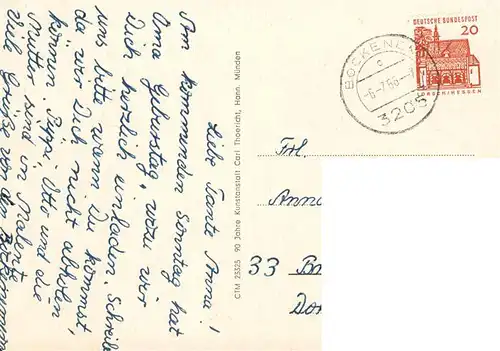 Liebe Tante Anna!
Am kommenden Sonntag hat
Oma Geburtstag, wozu wir
Dich herzlich einladen. Schreibe
uns bitte wenn Du kommst
da wir Dich nicht abholen
können. Püppi, Otto und die
Mutter sind in Malente
Viele Grüße von den
CTM 25325 90 Jahre Kunstanstalt Carl Thoericht, Hann. Münden
BOCKENE
c
-6-7.66-
3205
DEUTSCHE BUNDESPOST
20
LORSCH/HESSEN
Frl.
Anna
33 B
Do